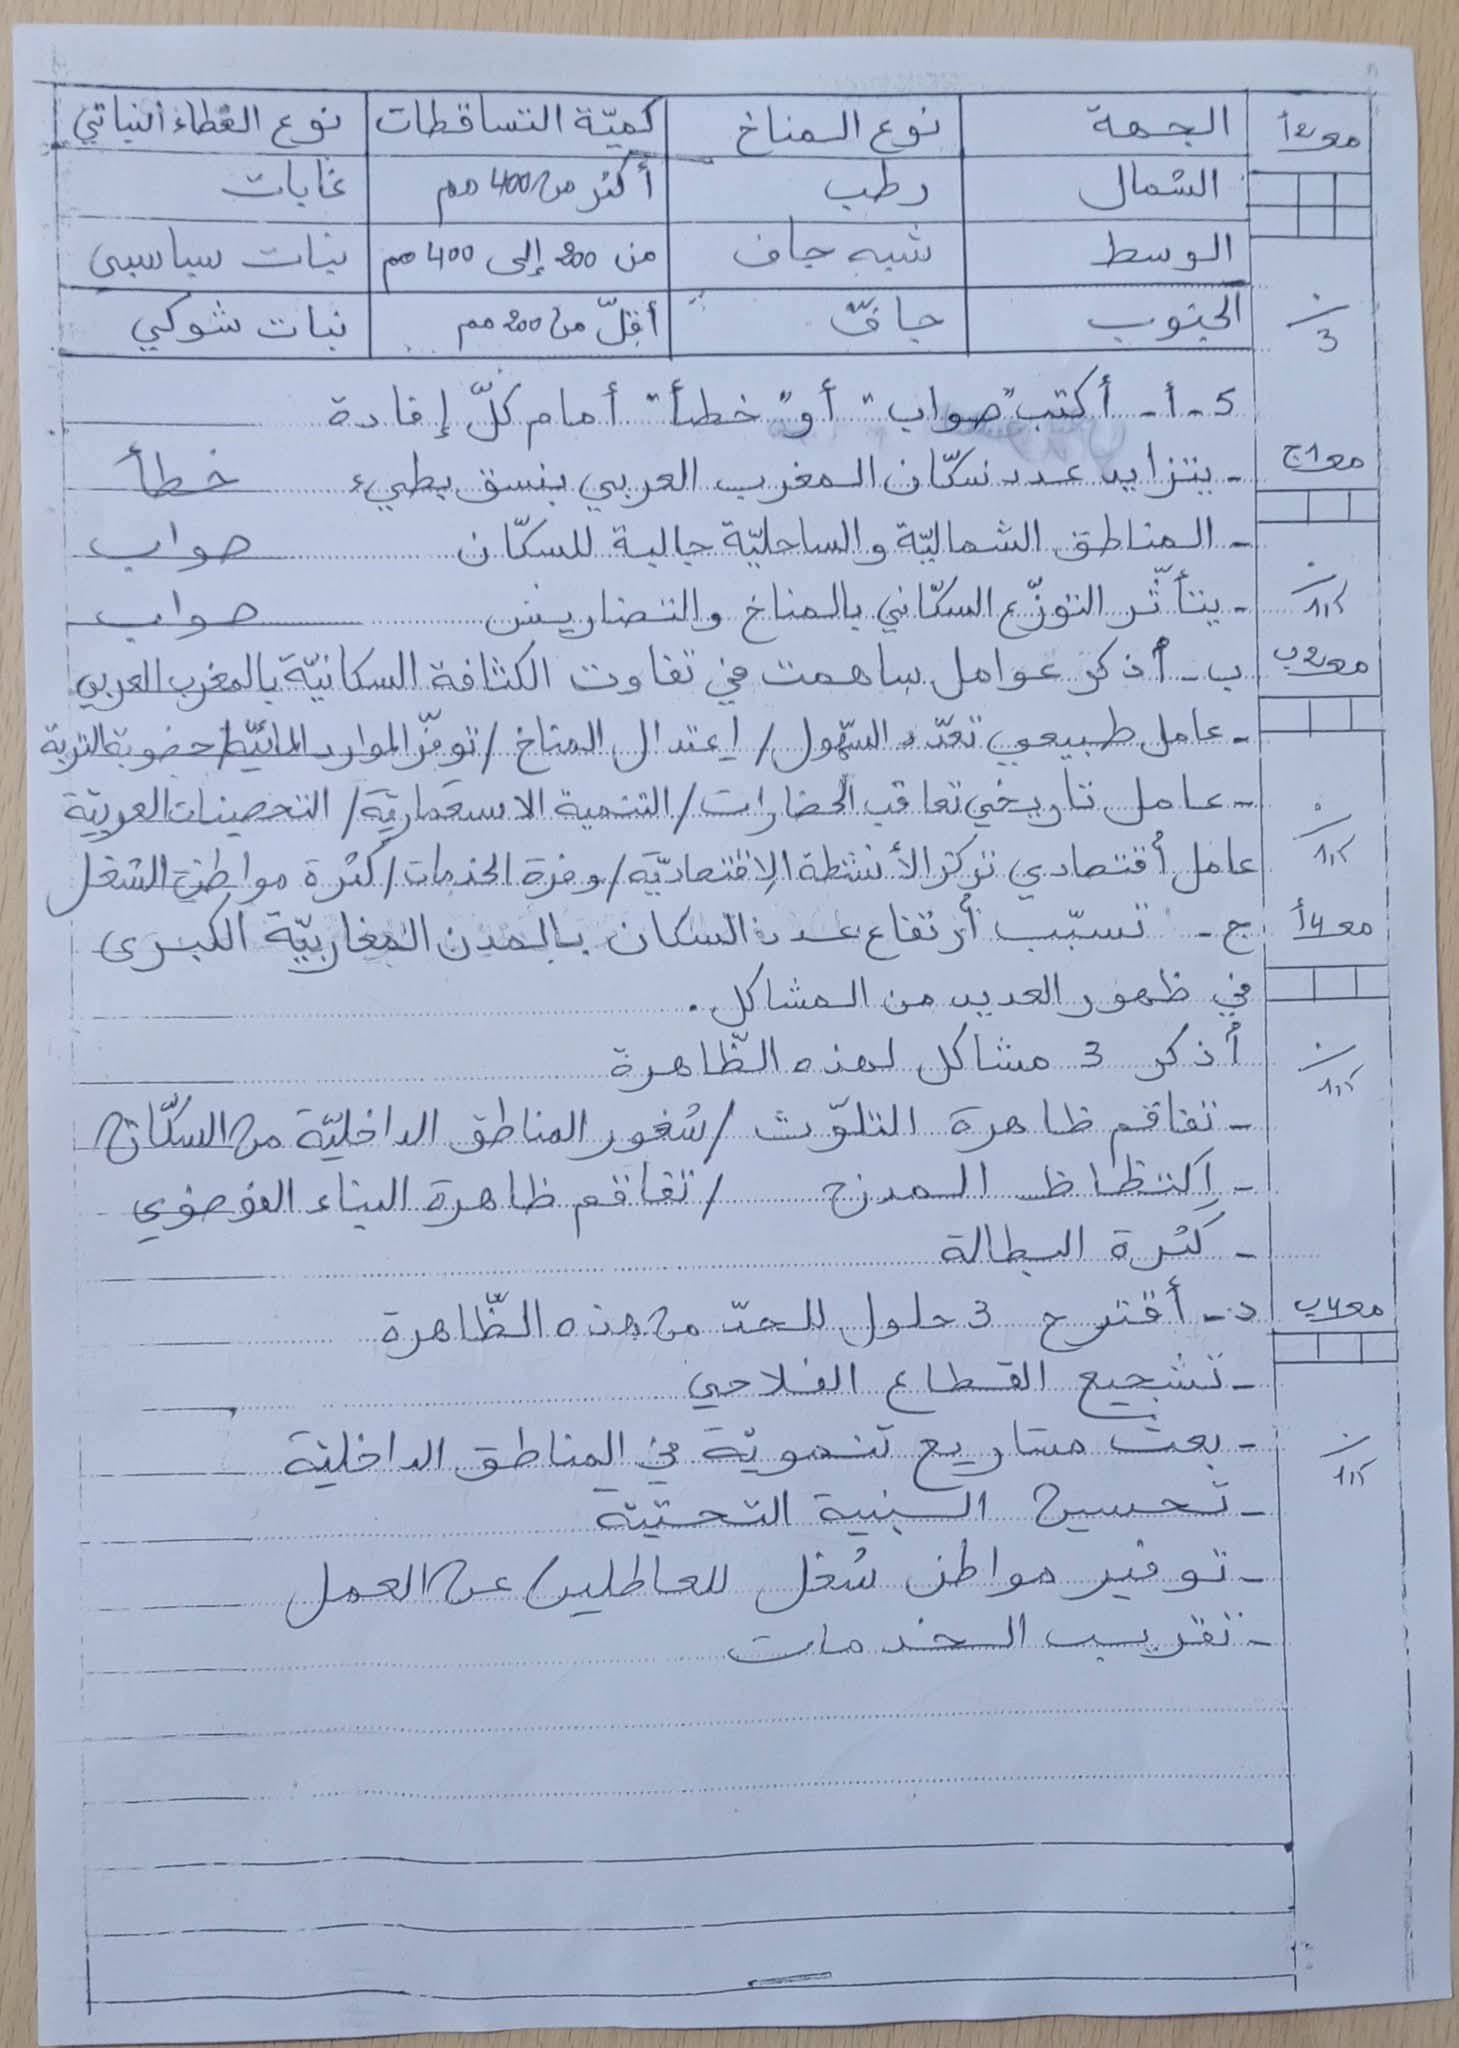 مع2أ
الجهة نوع المناخ كميّة التساقطات نوع الغطاء النباتي
الشمال رطب أكثر من 400 مم غابات
الوسط شبه جاف من 200 إلى 400 مم نبات سباسبي
الجنوب جافّ أقلّ من 200 مم نبات شوكي
3
5-أ- أكتب "صواب" أو "خطأ" أمام كلّ إفادة
مع1ج
- يتزايد عدد سكّان المغرب العربي بنسق بطيء خطأ
- المناطق الشماليّة والساحليّة جالبة للسكّان صواب
- يتأثّر التوزّع السكّاني بالمناخ والتضاريس صواب
1,5
مع2ب
ب- أذكر عوامل ساهمت في تفاوت الكثافة السكانيّة بالمغرب العربي
- عامل طبيعي تعدّد السّهول / إعتدال المناخ / توفّر الموارد المائيّة / خصوبة التربة
- عامل تاريخي تعاقب الحضارات / التنمية الاستعماريّة / التحصينات العربيّة
1,5
عامل أقتصادي تركز الأنشطة الإقتصاديّة / وفرة الخدمات / كثرة مواطن الشغل
مع4أ
ج- تسبّب أرتفاع عدد السكان بالمدن المغاربيّة الكبرى
في ظهور العديد من المشاكل.
أذكر 3 مشاكل لهذه الظّاهرة
1,5
- تفاقم ظاهرة التلوّث / شغور المناطق الداخليّة من السكّان
- إكتظاظ المدن / تفاقم ظاهرة البناء الفوضوي
- كثرة البطالة
مع4ب
د- أقترح 3 حلول للحدّ من هذه الظّاهرة
- تشجيع القطاع الفلاحي
- بعث مشاريع تنمويّة في المناطق الداخليّة
1,5
- تحسين البنية التحتيّة
- توفير مواطن شغل للعاطلين عن العمل
- تقريب الخدمات